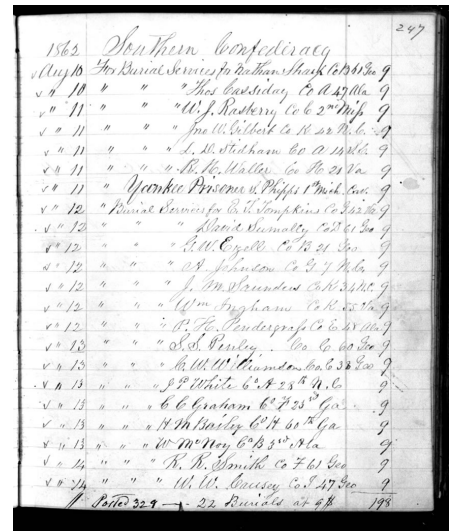 247
1862 Southern Confederacy
v Aug 10 For Burial Services for Nathan Sharp Co B 61 Geo 9
v " 10 " " " Thos Cassiday Co A 47 Ala 9
v " 11 " " " W. J. Rasberry Co C 2nd Miss 9
v " 11 " " " Jno W. Gilbert Co K 42 N.C. 9
v " 11 " " " L. D. Stidham Co A 14 9
v " 11 " " " R. H. Waller Co H 21 Va 9
v " 11 " Yankee Prisoner S. Phipps 1st Mich. Cav. 9
v " 12 " Burial Services for E. T. Tompkins Co 42 9
v " 12 " " " David Co D 61 Geo 9
v " 12 " " " G. W. Ezell Co B 21 Geo 9
v " 12 " " " A. Johnson Co G 7 N.C. 9
v " 12 " " " J. M. Saunders Co K 34 N.C. 9
v " 12 " " " Wm Ingham Co K 55 Va 9
v " 12 " " " P. H. Pendergrass Co C 48 Ala 9
v " 13 " " " S. S. Co C 60 Geo 9
v " 13 " " " C. W. Williamson Co C 38 Geo 9
v " 13 " " " J P White Co A 28th N.C 9
v " 13 " " " C C Graham Co F 25 Ga 9
v " 13 " " " H M Bailey Co H 60th Ga 9
v " 13 " " " W McNoy Co B 3rd Ala 9
v " 14 " " " R. R. Smith Co F 61 Geo 9
v " 14 " " " W. W. Causey Co I 47 Geo 9
Posted 329 22 Burials at 9$ 198